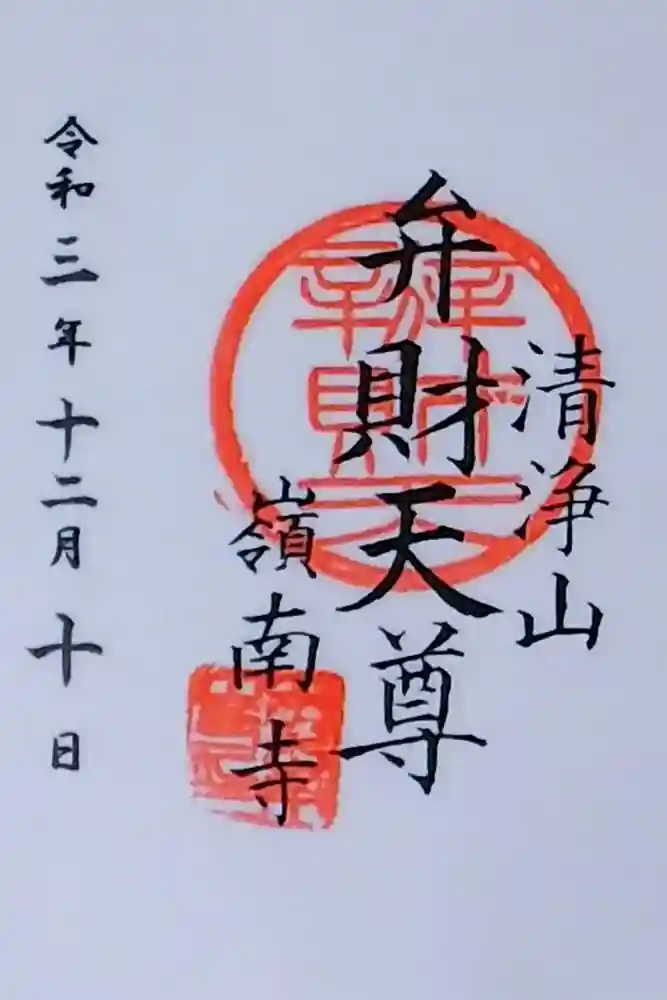 清浄山
弁財天尊
嶺南寺
令和三年十二月十日
辨財天